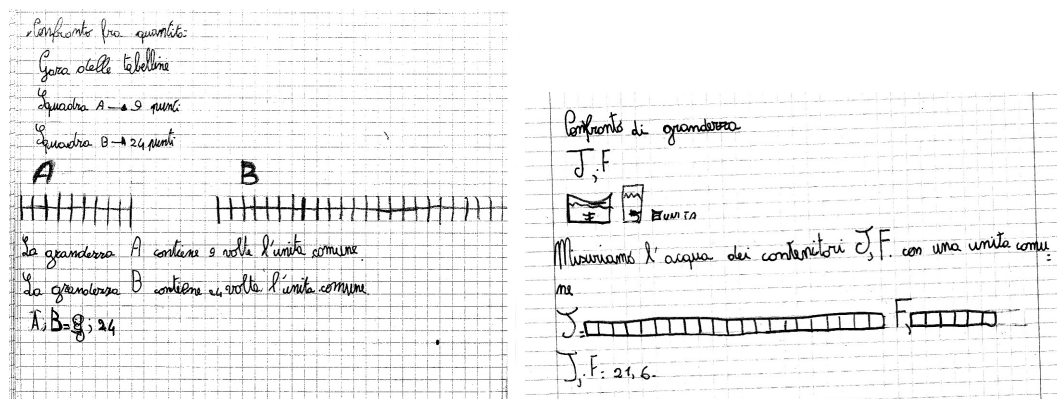 Confronto fra quantità:
Gara delle tabelline
Squadra A → 9 punti
Squadra B → 24 punti
A B
La grandezza A contiene 9 volte l'unità comune.
La grandezza B contiene 24 volte l'unità comune.
A, B = 9; 24
Confronto di grandezza
J, F
Misuriamo l'acqua dei contenitori J, F. con una unità comu=
ne
J= F,
J, F: 21, 6.